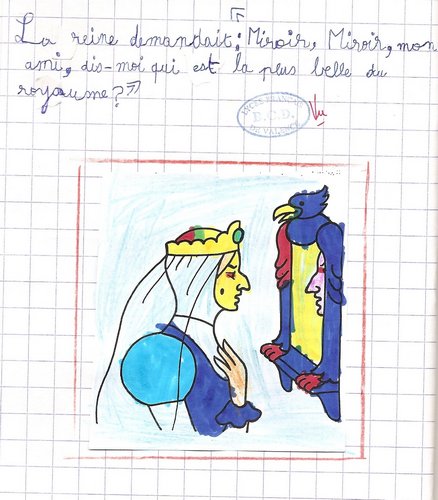 La reine demandait : « Miroir, Miroir, mon
ami, dis-moi qui est la plus belle du
royaume ? »
Vu
E.C.D.